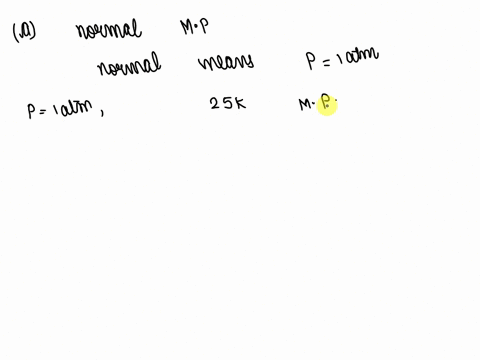 (a) normal M.P
normal means P = 1 atm
P = 1 atm, 25K M.P.